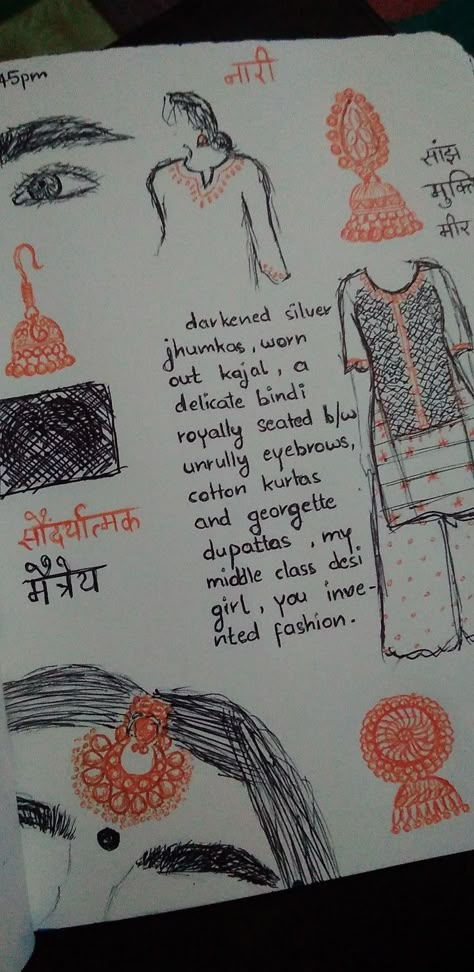 45pm
नारी
सांझ
मुक्ति
मीर
darkened silver
jhumkas, worn
out kajal, a
delicate bindi
royally seated b/w
unrully eyebrows,
cotton kurtas
and georgette
dupattas, my
middle class desi
girl, you inve-
nted fashion.
सौंदर्यात्मक
मैत्रेय